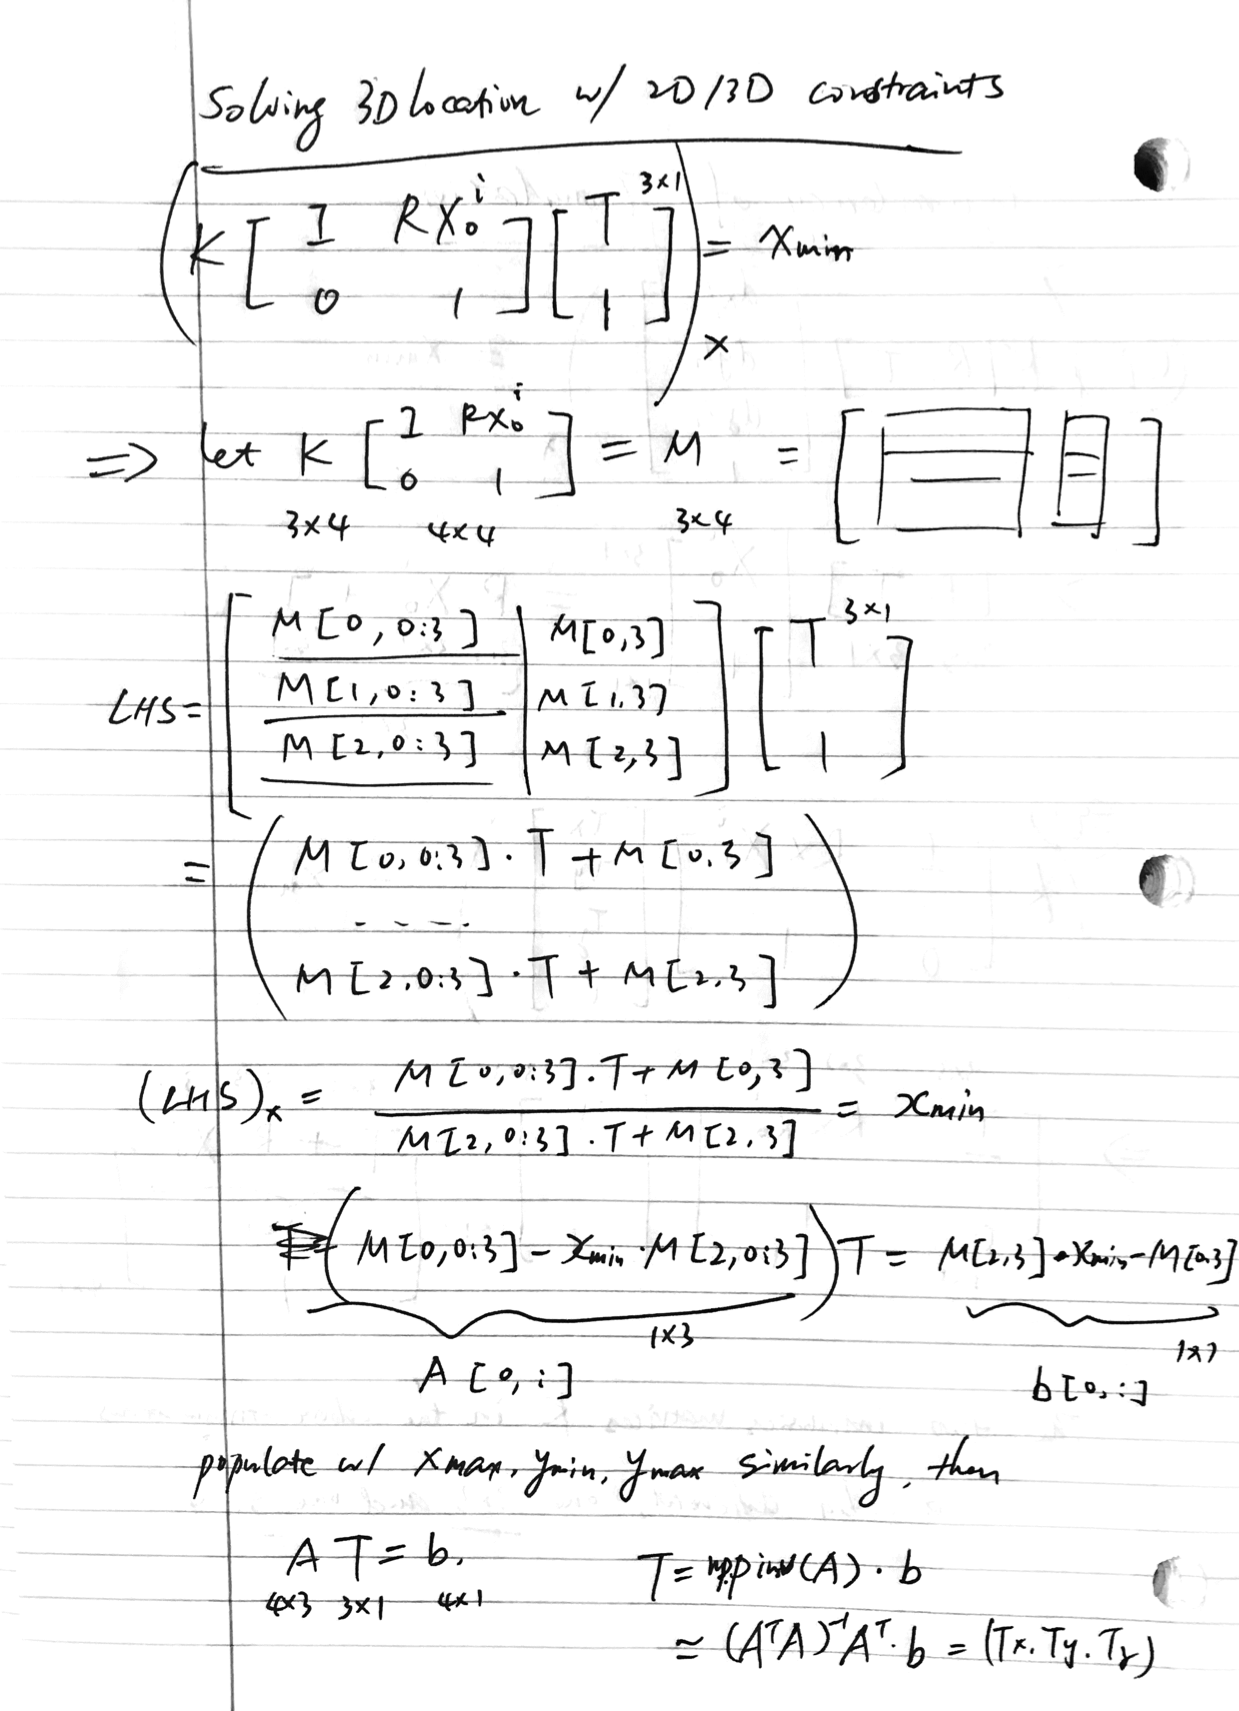 Solving 3D location w/ 2D/3D constraints
( K [ I RX₀ⁱ ; 0 1 ] [ T ³ˣ¹ ; 1 ] )ₓ = Xmin
=> let K [ I RX₀ⁱ ; 0 1 ] = M = [ ]
3x4 4x4 3x4
LHS = [ M[0,0:3] | M[0,3] ; M[1,0:3] | M[1,3] ; M[2,0:3] | M[2,3] ] [ T ³ˣ¹ ; 1 ]
= ( M[0,0:3]·T + M[0,3]
.....
M[2,0:3]·T + M[2,3] )
(LHS)ₓ = (M[0,0:3]·T + M[0,3]) / (M[2,0:3]·T + M[2,3]) = xmin
( M[0,0:3] - xmin·M[2,0:3] ) T = M[2,3]·xmin - M[0,3]
1x3 1x1
A[0,:] b[0,:]
populate w/ xmax, ymin, ymax similarly, then
A T = b.
4x3 3x1 4x1
T = np.pinv(A)·b
≃ (AᵀA)⁻¹Aᵀ·b = (Tx. Ty. Tz)